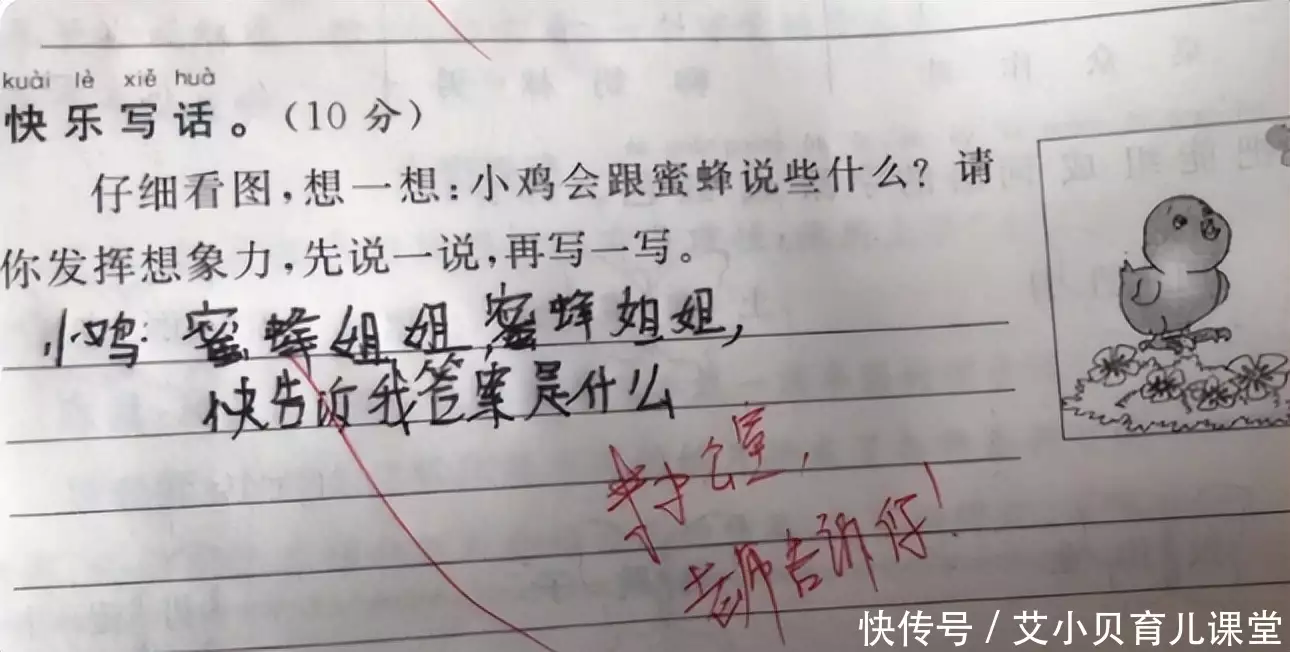 kuài lè xiě huà
快乐写话。（10分）
仔细看图，想一想：小鸡会跟蜜蜂说些什么？请
你发挥想象力，先说一说，再写一写。
小鸡：蜜蜂姐姐，蜜蜂姐姐，
快告诉我答案是什么
来办公室，
老师告诉你！
快传号 / 艾小贝育儿课堂